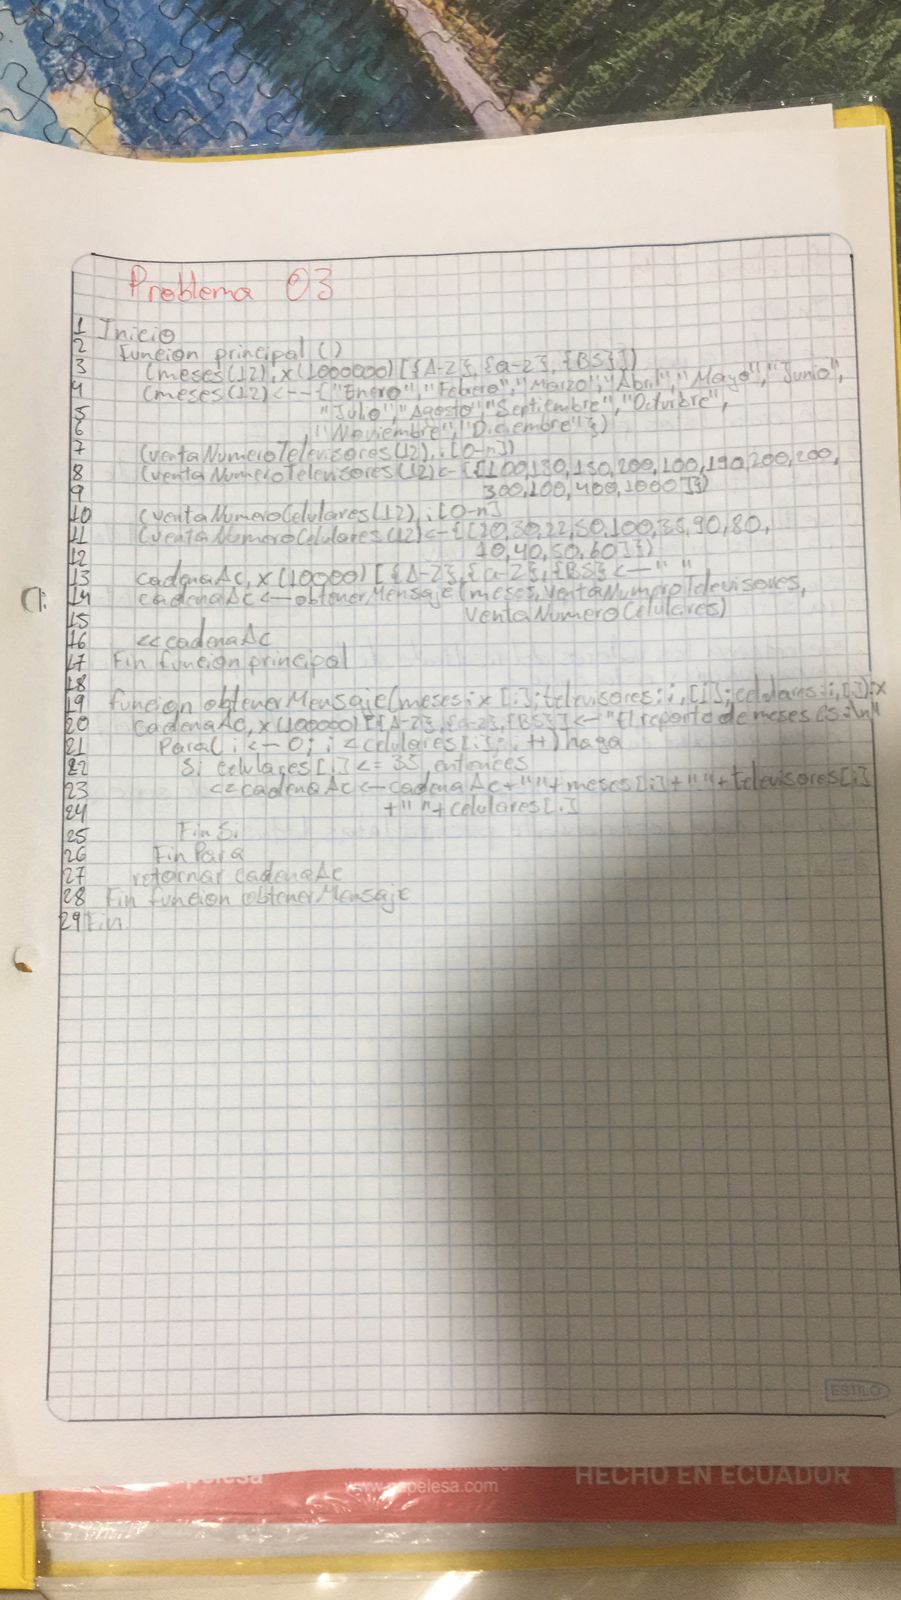 Problema 03
1 Inicio
2 funcion principal ()
3 (meses(12), x(1000000) [{A-Z}, {a-z}, {BS}])
4 (meses(12) <-- {"Enero", "Febrero", "Marzo", "Abril", "Mayo", "Junio",
5 "Julio", "Agosto", "Septiembre", "Octubre",
6 "Noviembre", "Diciembre"})
7 (ventaNumeroTelevisores(12), i [0-n])
8 (ventaNumeroTelevisores(12) <- {[100,130,150,200,100,190,200,200,
9 300,100,400,1000]})
10 (ventaNumeroCelulares(12), i [0-n]
11 (ventaNumeroCelulares(12) <- {[20,30,22,50,100,35,90,80,
12 10,40,50,60]})
13 cadenaAc, x(10000) [{A-Z}, {a-z}, {BS} <-- " "
14 cadenaAc <-- obtenerMensaje (meses, ventaNumeroTelevisores,
15 ventaNumeroCelulares)
16 << cadenaAc
17 Fin funcion principal
18
19 funcion obtenerMensaje(meses: x [i]; televisores: i, [i]; celulares: i, [i]): x
20 cadenaAc, x(100000) [{A-Z}, {a-z}, {BS}] <-- "El reporte de meses es: \n"
21 Para( i <-- 0; i < celulares[i]; i++) haga
22 Si celulares[i] <= 35 entonces
23 << cadenaAc <-- cadenaAc + " " + meses[i] + " " + televisores[i]
24 + " " + celulares[i]
25 Fin Si
26 Fin Para
27 retornar cadenaAc
28 Fin funcion obtenerMensaje
29 Fin
ESTILO
www.papelesa.com
HECHO EN ECUADOR